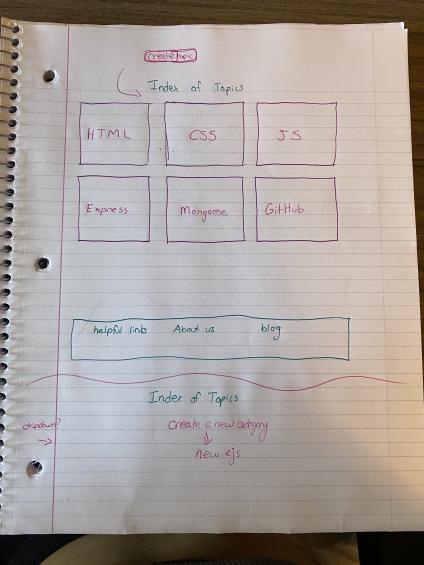 create topic
Index of Topics
HTML CSS JS
Express Mongoose GitHub
helpful links About us blog
Index of Topics
dropdown? Create a new category
new ejs